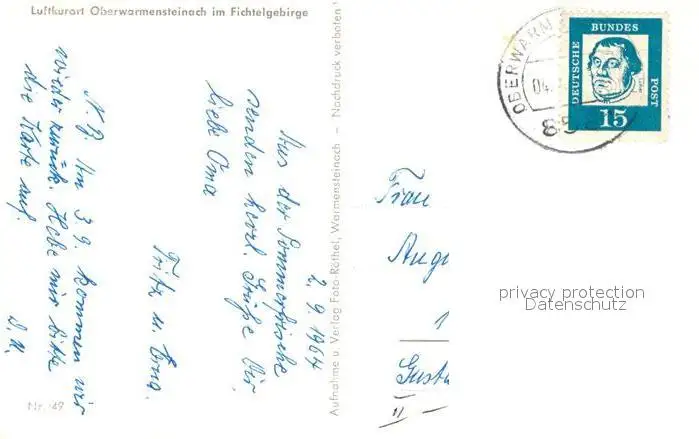 Luftkurort Oberwarmensteinach im Fichtelgebirge
2.9.1964
Aus der Sommerfrische
senden herzl. Grüße Dir,
liebe Oma
Fritz u. Erna.
N.B. Am 3.9. kommen wir
wieder zurück. Hebe mir bitte
die Karte auf.
D.O.
Nr. 49
Aufnahme u Verlag Foto-Röthel, Warmensteinach — Nachdruck verboten
OBERWARM
04.
85
DEUTSCHE
BUNDES
POST
15
Frau
Augu
1
Gusta
privacy protection
Datenschutz